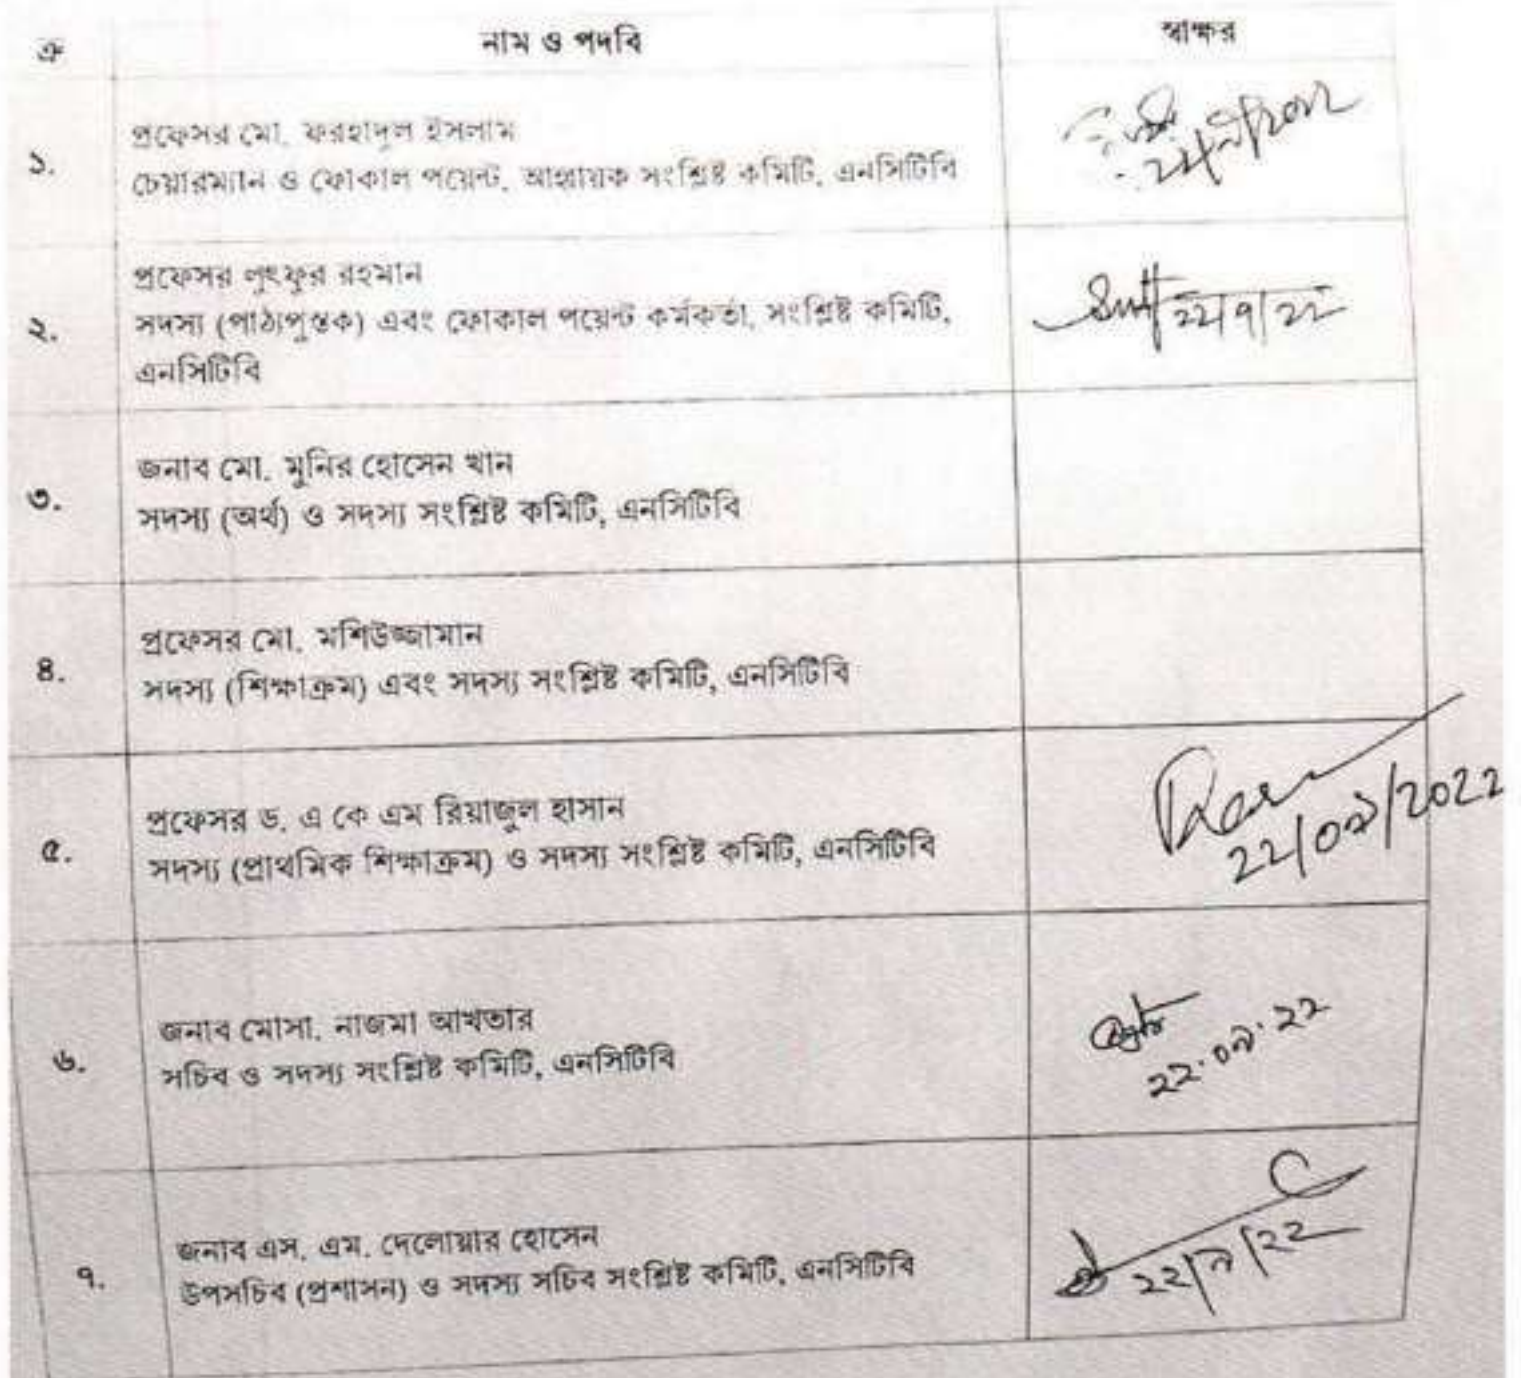 ক্র নাম ও পদবি স্বাক্ষর
১. প্রফেসর মো. ফরহাদুল ইসলাম
চেয়ারম্যান ও ফোকাল পয়েন্ট, আহ্বায়ক সংশ্লিষ্ট কমিটি, এনসিটিবি
২. প্রফেসর লুৎফুর রহমান
সদস্য (পাঠ্যপুস্তক) এবং ফোকাল পয়েন্ট কর্মকর্তা, সংশ্লিষ্ট কমিটি,
এনসিটিবি
22/9/22
৩. জনাব মো. মুনির হোসেন খান
সদস্য (অর্থ) ও সদস্য সংশ্লিষ্ট কমিটি, এনসিটিবি
৪. প্রফেসর মো. মশিউজ্জামান
সদস্য (শিক্ষাক্রম) এবং সদস্য সংশ্লিষ্ট কমিটি, এনসিটিবি
৫. প্রফেসর ড. এ কে এম রিয়াজুল হাসান
সদস্য (প্রাথমিক শিক্ষাক্রম) ও সদস্য সংশ্লিষ্ট কমিটি, এনসিটিবি
22/০৯/2022
৬. জনাব মোসা. নাজমা আখতার
সচিব ও সদস্য সংশ্লিষ্ট কমিটি, এনসিটিবি
২২.০৯.২২
৭. জনাব এস. এম. দেলোয়ার হোসেন
উপসচিব (প্রশাসন) ও সদস্য সচিব সংশ্লিষ্ট কমিটি, এনসিটিবি
২২/৯/২২